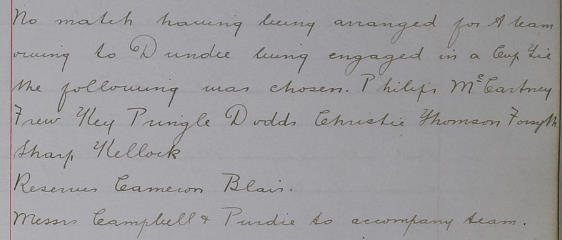 No match having being arranged for A team
owing to Dundee being engaged in a Cup Tie
the following was chosen. Philips McCartney
Frew Key Pringle Dodds Christie Thomson Forsyth
Sharp Kellock
Reserves Cameron Blair.
Messrs Campbell & Purdie to accompany team.